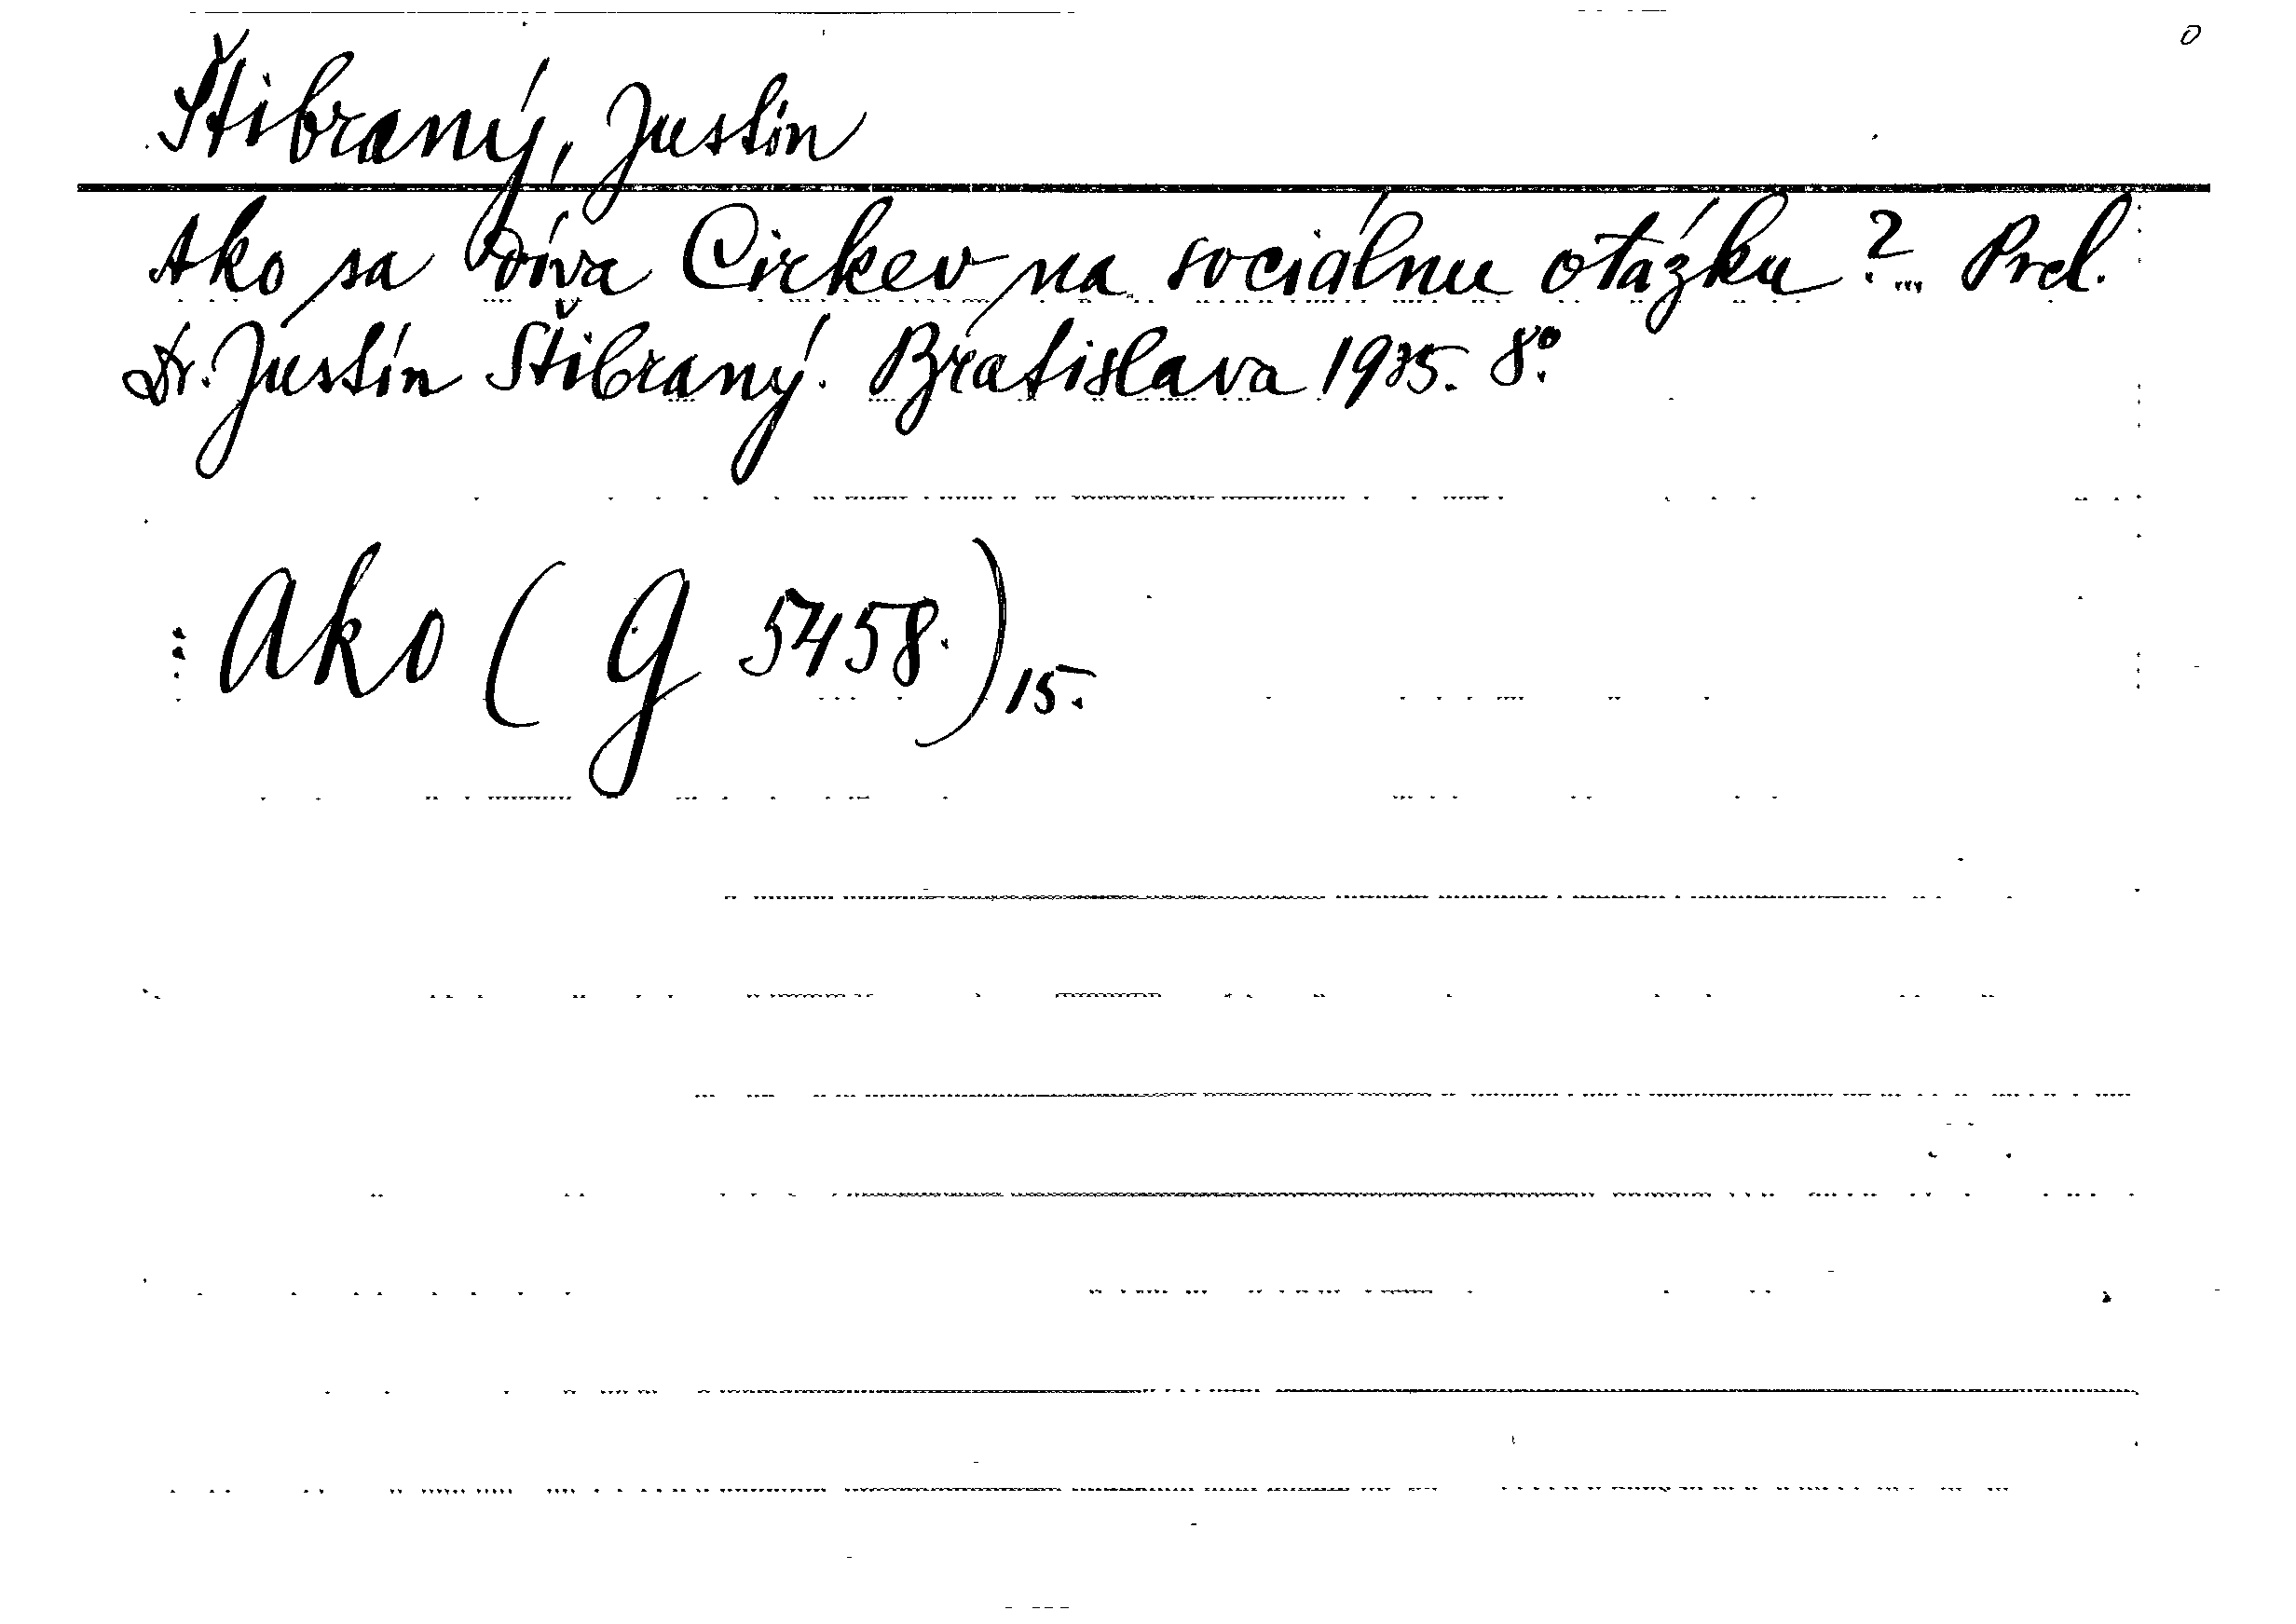 Štibraný, Justín
Ako sa díva Cirkev na sociálnu otázku?... Prel.
Dr. Justín Štibraný. Bratislava 1935. 8°.
Ako (G 5458.)15.